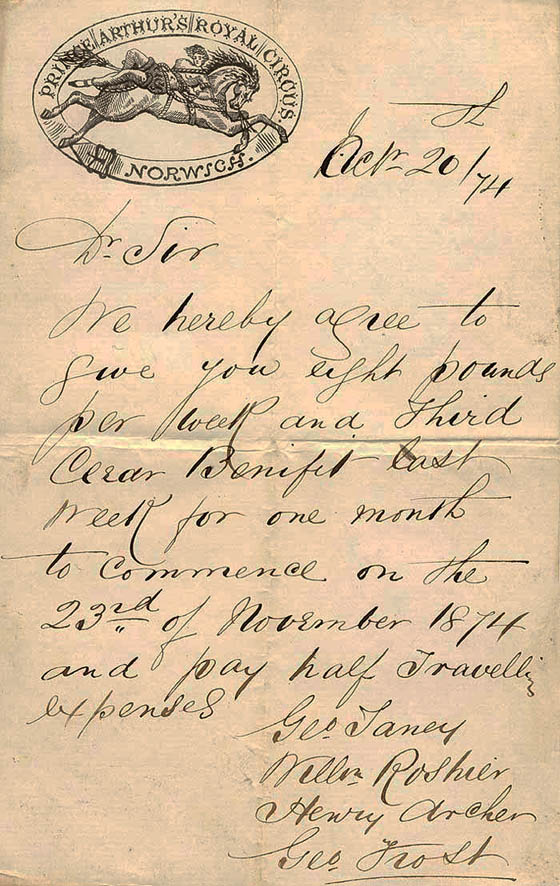 PRINCE ARTHUR'S ROYAL CIRCUS.
NORWICH.
Octr 20th/74
Dr Sir
We hereby agree to
give you eight pounds
per week and Third
Clear Benifit last
week for one month
to commence on the
23rd of November 1874
and pay half Travelling
expenses
Geo. Taney
Willm Roshier
Henry Archer
Geo. Frost